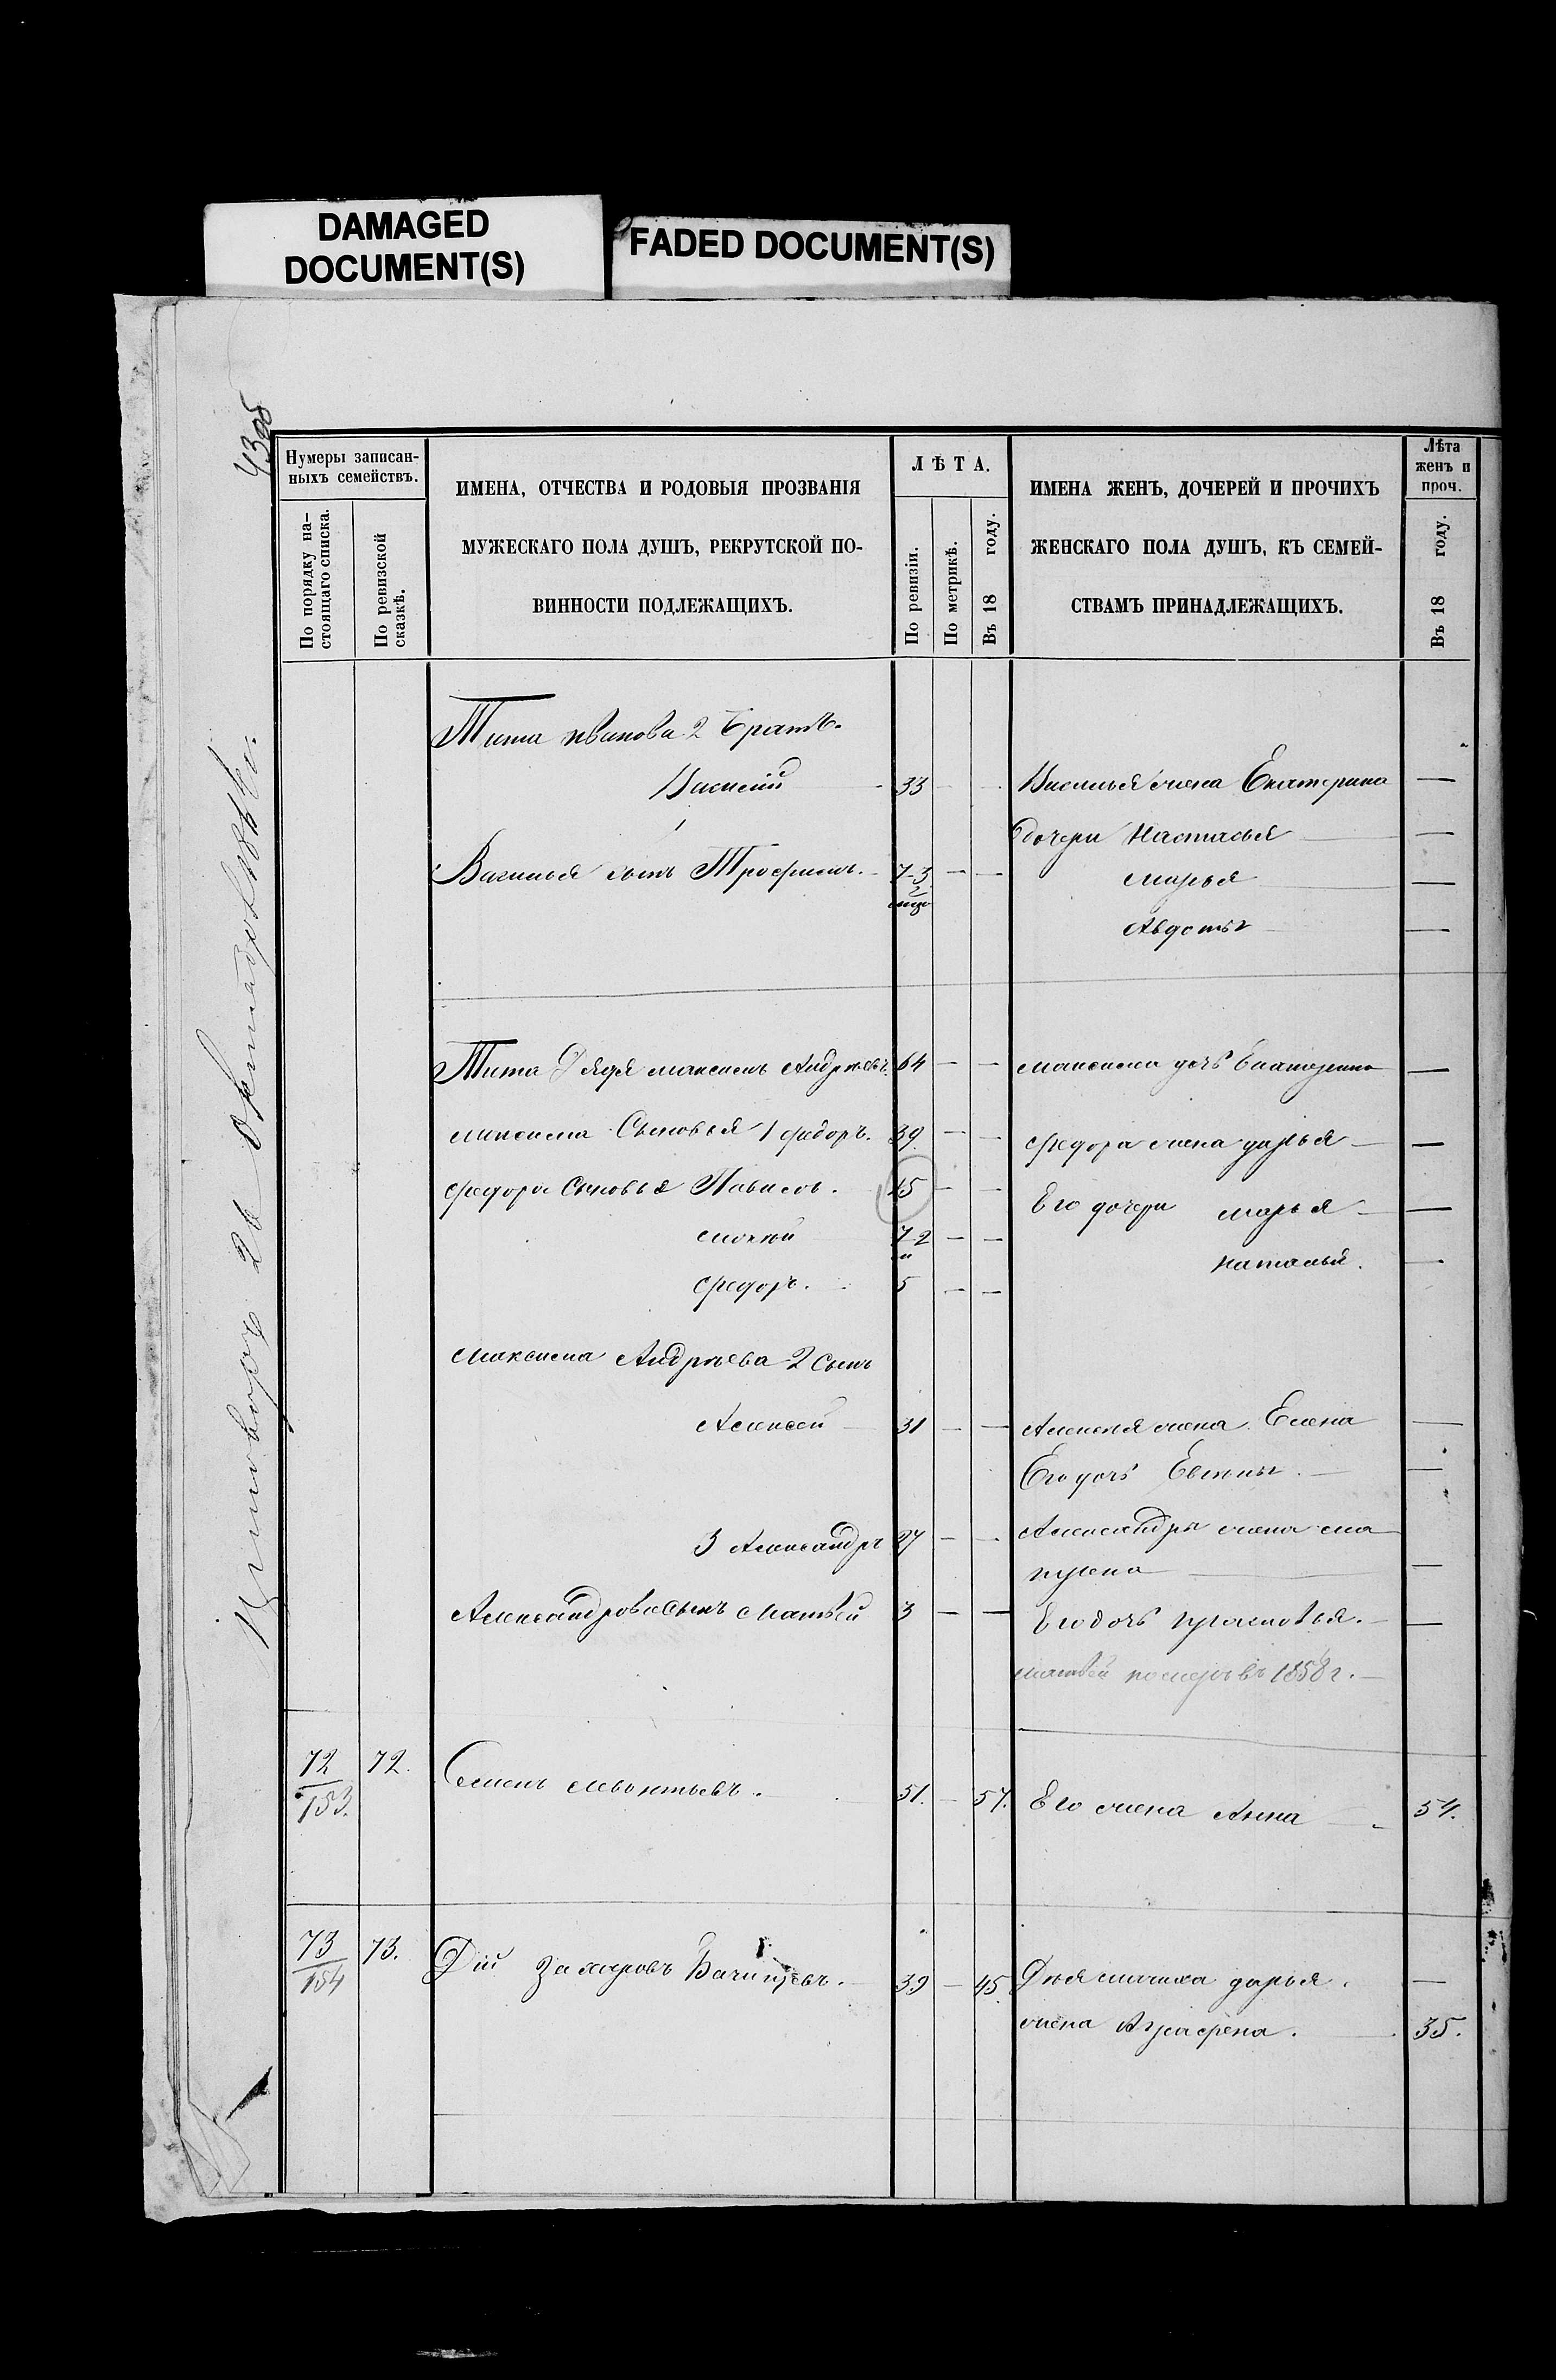 DAMAGED
DOCUMENT(S)
FADED DOCUMENT(S)
43об
Нумеры записан-
ныхъ семействъ.
По порядку на-
стоящаго списка.
По ревизской
сказкѣ.
ИМЕНА, ОТЧЕСТВА И РОДОВЫЯ ПРОЗВАНІЯ
МУЖЕСКАГО ПОЛА ДУШЪ, РЕКРУТСКОЙ ПО-
ВИННОСТИ ПОДЛЕЖАЩИХЪ.
ЛѢТА.
По ревизіи.
По метрикѣ.
Въ 18 году.
ИМЕНА ЖЕНЪ, ДОЧЕРЕЙ И ПРОЧИХЪ
ЖЕНСКАГО ПОЛА ДУШЪ, КЪ СЕМЕЙ-
СТВАМЪ ПРИНАДЛЕЖАЩИХЪ.
Лѣта
женъ и
проч.
Въ 18 году.
Тита Иванова 2 братъ.
Василій 33 — — Василья жена Екатерина —
дочери Настасья —
Василья сынъ Трофимъ. — — Марья —
Авдотья —
Тита Дядя Максимъ Андреевъ. 64 — — Максима дочь Екатерина —
Максима Сыновья 1 Федоръ. 39 — — Федора жена Дарья —
Федора Сыновья 15 — — Его дочери Марья —
72 — — Наталья. —
Федоръ. 5 — —
Максима Андреева 2 сынъ
Алексей 31 — — Алексея жена Елена —
Его дочь —
3 Александръ 27 — — Александра жена Ма
трена —
Александрова сынъ Матвей 3 — — Его дочь Прасковья. —
Матвей померъ въ 1858 г. —
72 72.
153. Семенъ Леонтьевъ. 51. — 57. Его жена Анна 54.
73 73.
154 Дій Захаровъ 39 — 45 Дія мачиха Дарья. —
жена Аграфена. 35.